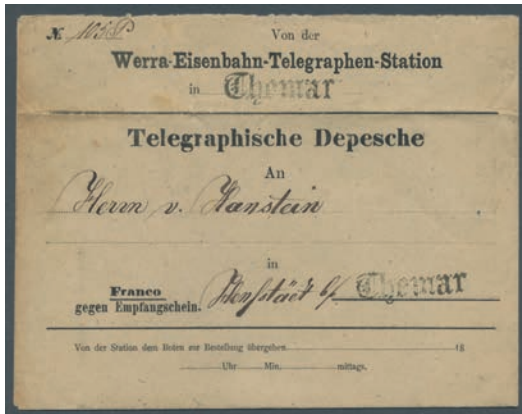 № 103 P Von der
Werra-Eisenbahn-Telegraphen-Station
in Themar
Telegraphische Depesche
An
Herrn v. Hanstein
in
Franco
gegen Empfangschein. b/ Themar
Von der Station dem Boten zur Bestellung übergeben 18
Uhr Min. mittags.